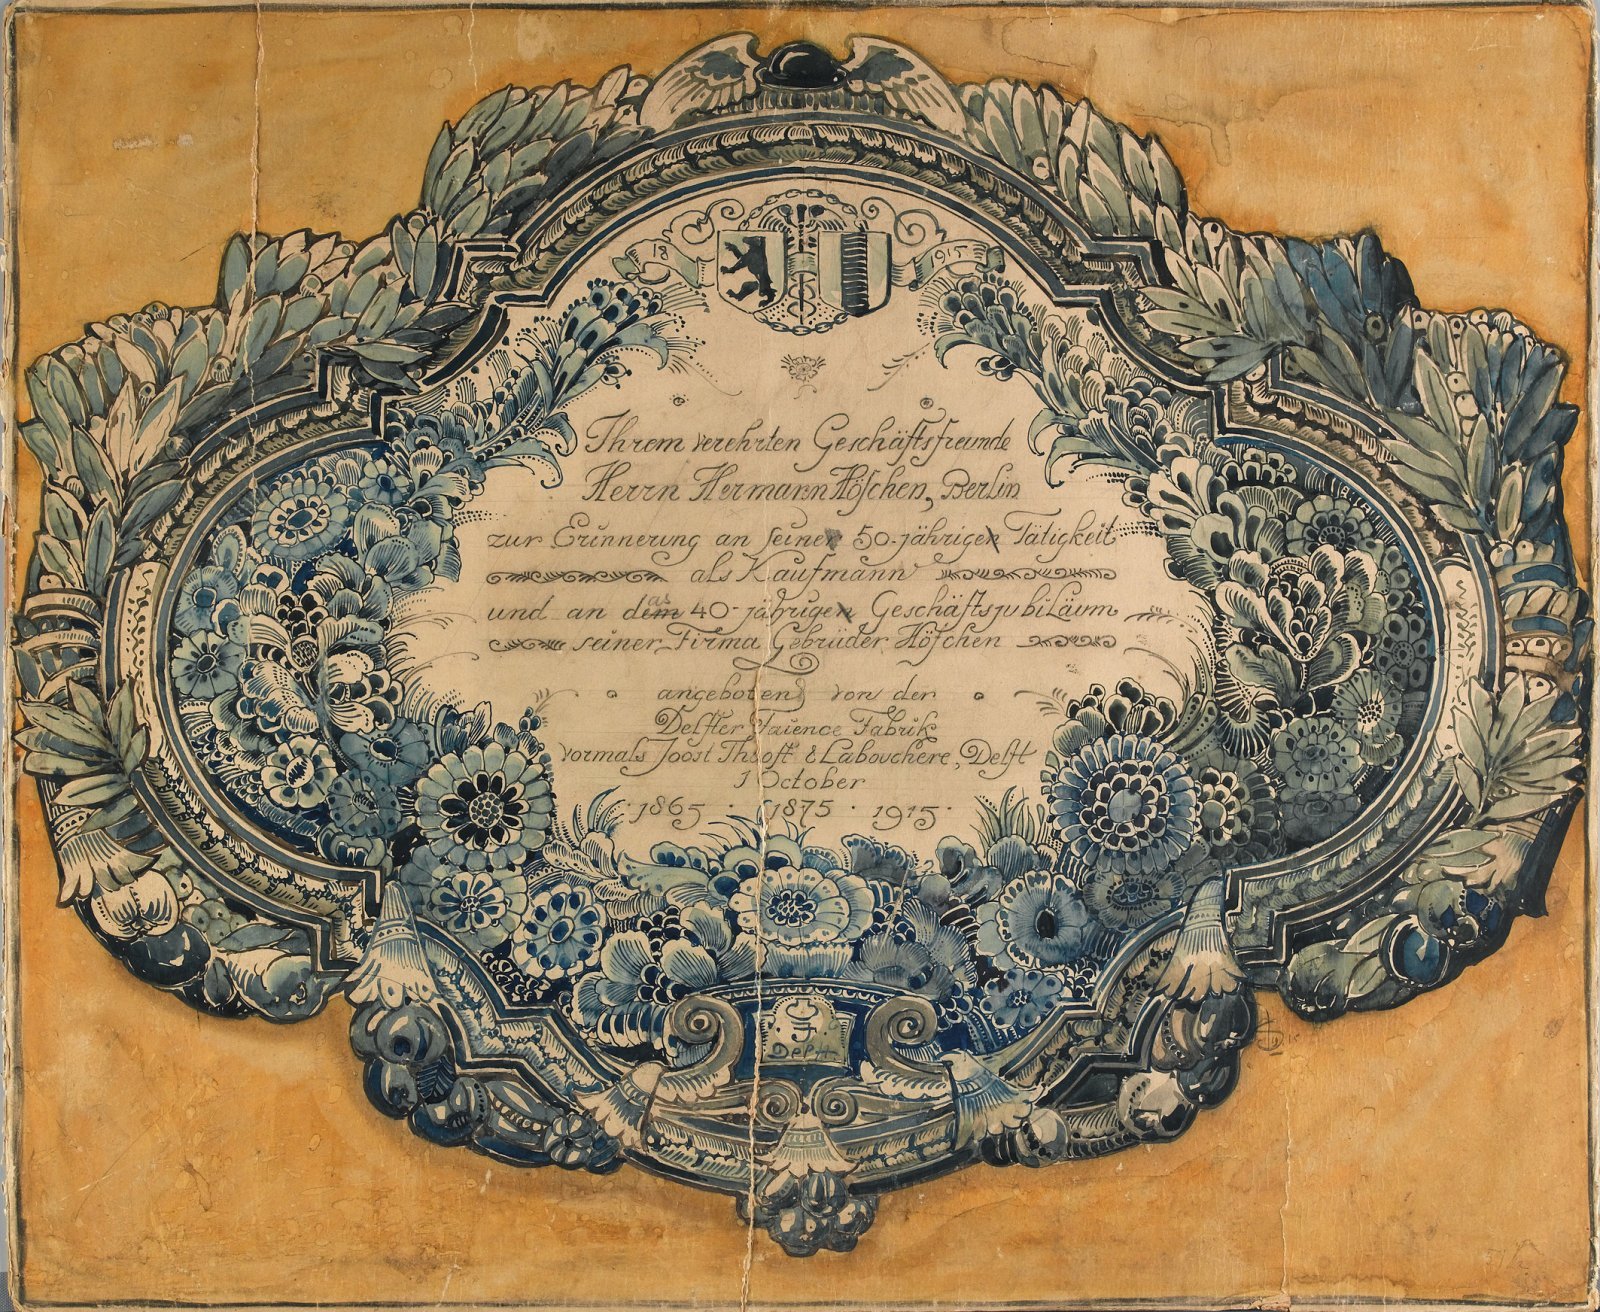 18 1915
Ihrem verehrten Geschäftsfreunde
Herrn Hermann Höschen, Berlin
zur Erinnerung an seiner 50-jährigen Tätigkeit
als Kaufmann
und an dem as 40-jährigen Geschäftsjubiläum
seiner Firma Gebrüder Höschen
angeboten von der
Delfter Faience Fabrik
vormals Joost Thooft & Labouchere, Delft
1 October
1865 · 1875 · 1915
Delft